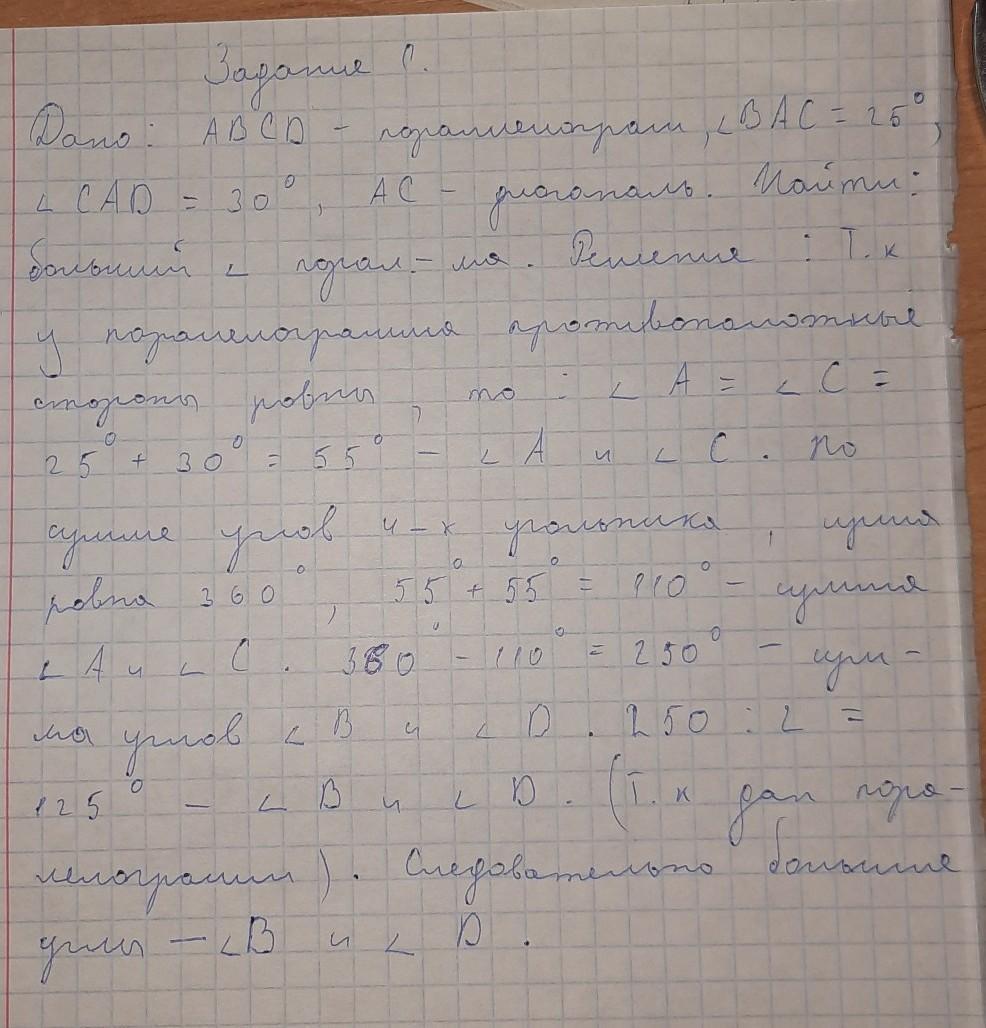 Задание 1.
Дано: ABCD - параллелограм, ∠BAC = 25°,
∠CAD = 30°, AC - диагональ. Найти:
больший ∠ парал.-ма. Решение : Т.к
у паралелограмма противоположные
стороны равны, то : ∠ A = ∠ C =
25° + 30° = 55° - ∠ A и ∠ C. По
сумме углов ч-х угольника, сумма
равна 360°, 55° + 55° = 110° - сумма
∠ A и ∠ C. 360° - 110° = 250° - сум-
ма углов ∠ B и ∠ D. 250 : 2 =
125° - ∠ B и ∠ D. (Т.к дан пара-
лелограмм). Следовательно большие
углы - ∠B и ∠ D.